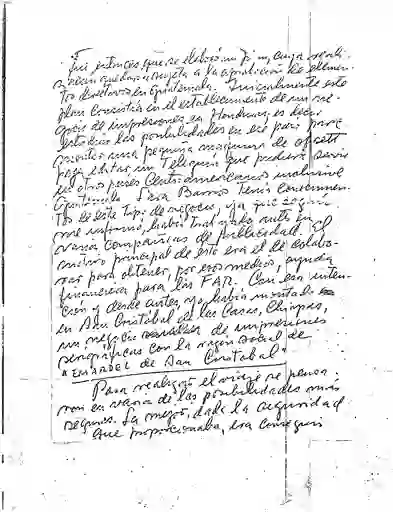 Fué entonces que se elaboró un plan, cuya reali-
zación quedaría sujeta a la aprobación de elemen-
tos directivos en Guatemala. Inicialmente este
plan consistía en el establecimiento de un ne-
gocio de impresiones en Honduras, es decir
estudiar las posibilidades en ese país para
montar una pequeña maquina de offsett
para editar un que pudiera servir
en otros países Centroamericanos inclusive
Guatemala. Sara Barrios tenía conocimien-
tos de este tipo de negocio, ya que según
me informó, había trabajado antes en
varias compañías de publicidad. El
motivo principal de esto era el de colabo-
rar para obtener, por esos medios, ayuda
financiera para las FAR. Con esa inten-
ción y desde antes, ya había montado
en San Cristóbal de las Casas, Chiapas,
un negocio de impresiones
serigráficas con la razón social de
" DE San Cristobal"
Para realizar el viaje se pensa-
ron en varias de las posibilidades más
seguras. La mejor, dada la seguridad
que proporcionaba, era conseguir